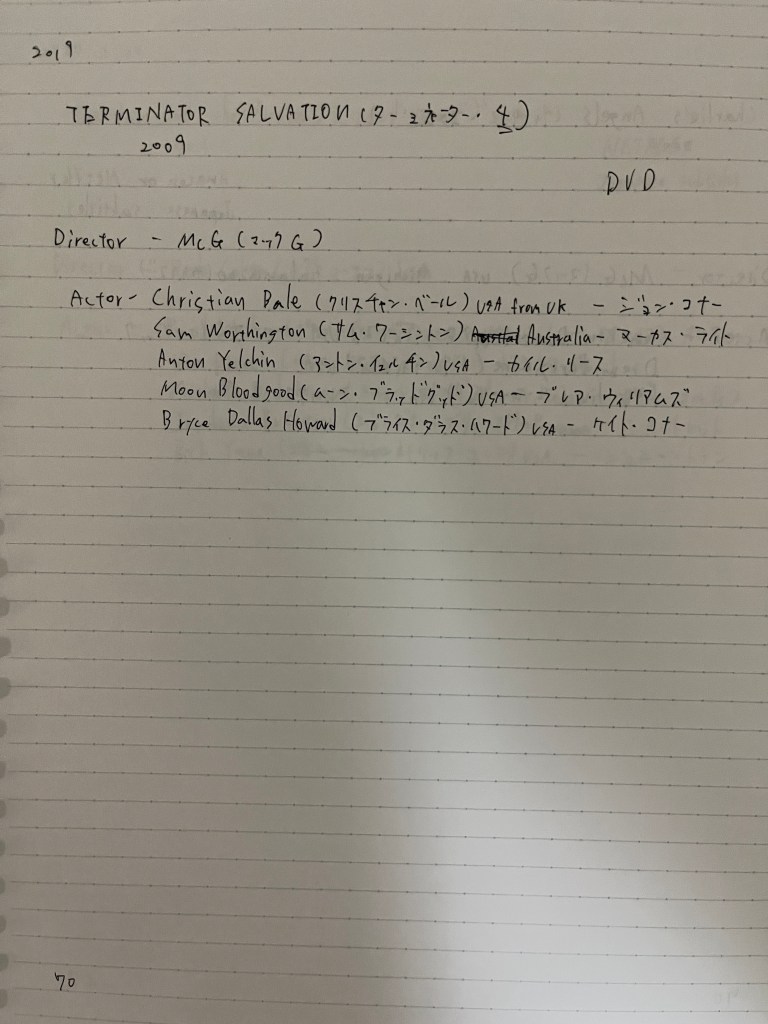 2019
TERMINATOR SALVATION (ターミネーター・4)
2009
DVD
Director - McG (マックG)
Actor - Christian Bale (クリスチャン・ベール) USA from UK - ジョン・コナー
Sam Worthington (サム・ワーシントン) Australia - マーカス・ライト
Anton Yelchin (アントン・イェルチン) USA - カイル・リース
Moon Bloodgood (ムーン・ブラッドグッド) USA - ブレア・ウィリアムズ
Bryce Dallas Howard (ブライス・ダラス・ハワード) USA - ケイト・コナー
70